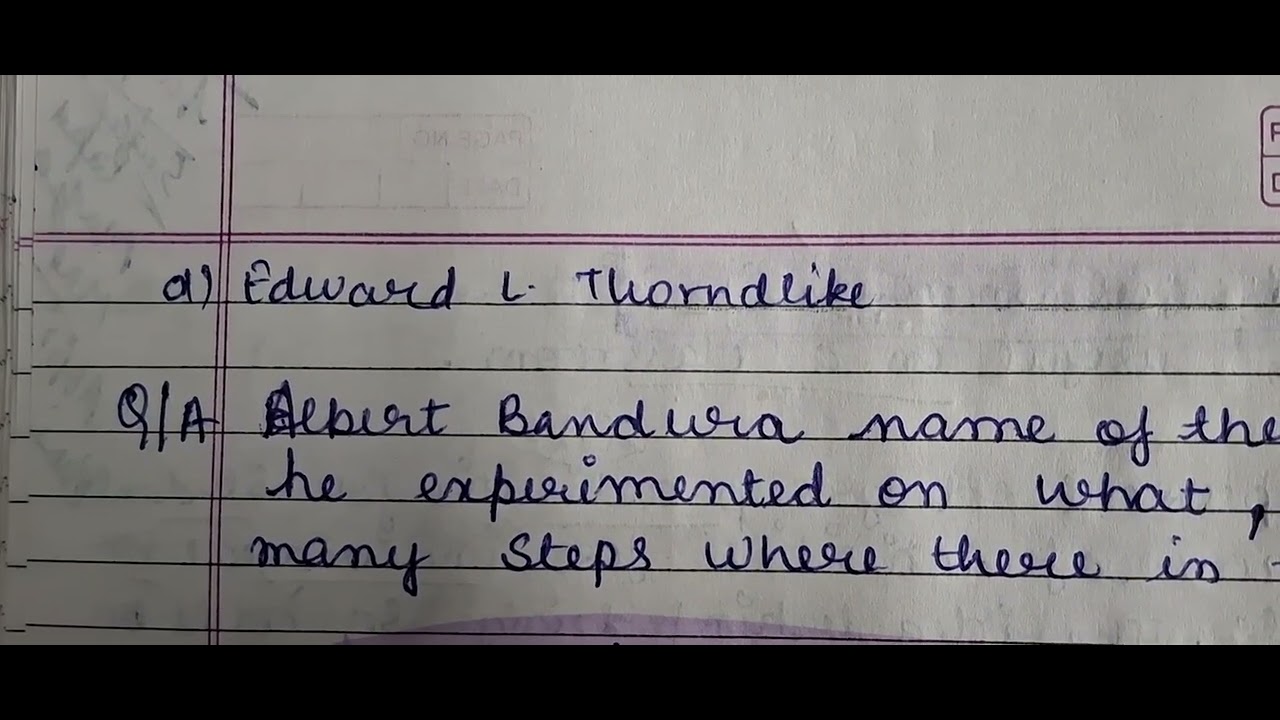 a) Edward L. Thorndike
Q/A Albert Bandura name of the
he experimented on what,
many steps where there in